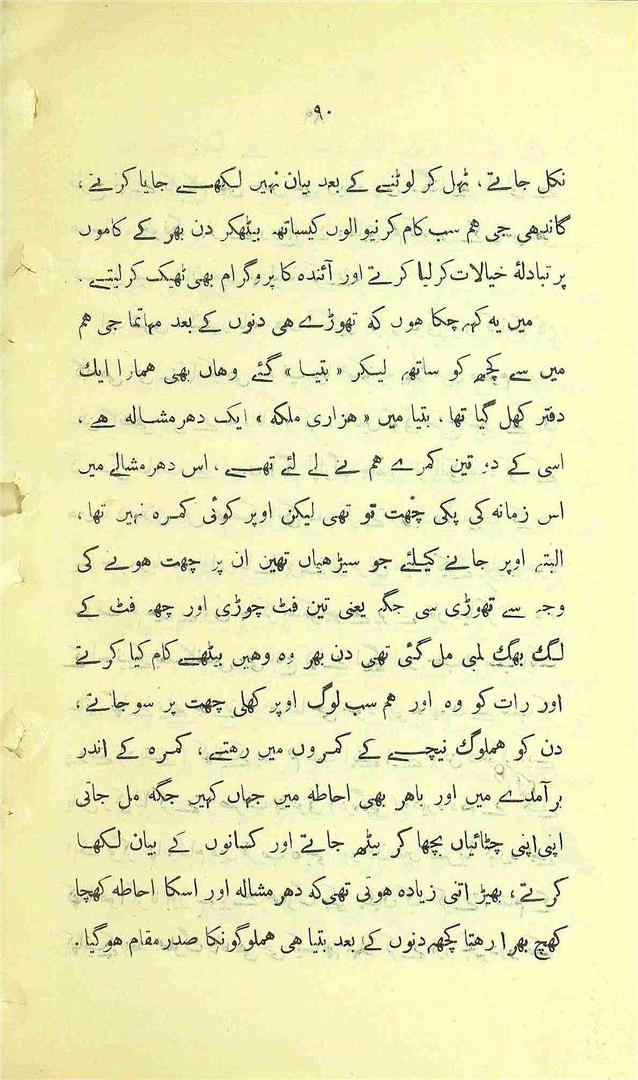 ۹۰
نکل جاتے ، ٹہل کر لوٹنے کے بعد بیان نہیں لکھے جایا کرتے ،
گاندھی جی هم سب کام کرنیوالوں کیساتھ بیٹھکر دن بھر کے کاموں
پر تبادلۂ خیالات کر لیا کرتے اور آئندہ کا پروگرام بھی ٹھیک کر لیتے .
میں یہ کہہ چکا هوں کہ تھوڑے هی دنوں کے بعد مہاتما جی هم
میں سے کچھ کو ساتھ لیکر « بتیا » گئے وهاں بھی همارا ایک
دفتر کھل گیا تھا . بتیا میں « هزاری ملکھ » ایک دهرمشالہ هے ،
اسی کے دو تین کمرے هم نے لے لئے تھے ، اس دهرمشالے میں
اس زمانہ کی پکی چھت تو تھی لیکن اوپر کوئی کمرہ نہیں تھا ،
البتہ اوپر جانے کیلئے جو سیڑھیاں تھیں ان پر چھت هونے کی
وجہ سے تھوڑی سی جگہ یعنی تین فٹ چوڑی اور چھ فٹ کے
لگ بھگ لمبی مل گئی تھی دن بھر وہ وهیں بیٹھے کام کیا کرتے
اور رات کو وہ اور هم سب لوگ اوپر کھلی چھت پر سو جاتے ،
دن کو هملوگ نیچے کے کمروں میں رهتے ، کمرہ کے اندر
برآمدے میں اور باهر بھی احاطہ میں جہاں کہیں جگہ مل جاتی
اپنی اپنی چٹائیاں بچھا کر بیٹھ جاتے اور کسانوں کے بیان لکھا
کرتے ، بھیڑ اتنی زیادہ هوتی تھی کہ دهرمشالہ اور اسکا احاطہ کھچا
کھچ بھرا رهتا کچھ دنوں کے بعد بتیا هی هملوگونکا صدر مقام هوگیا .